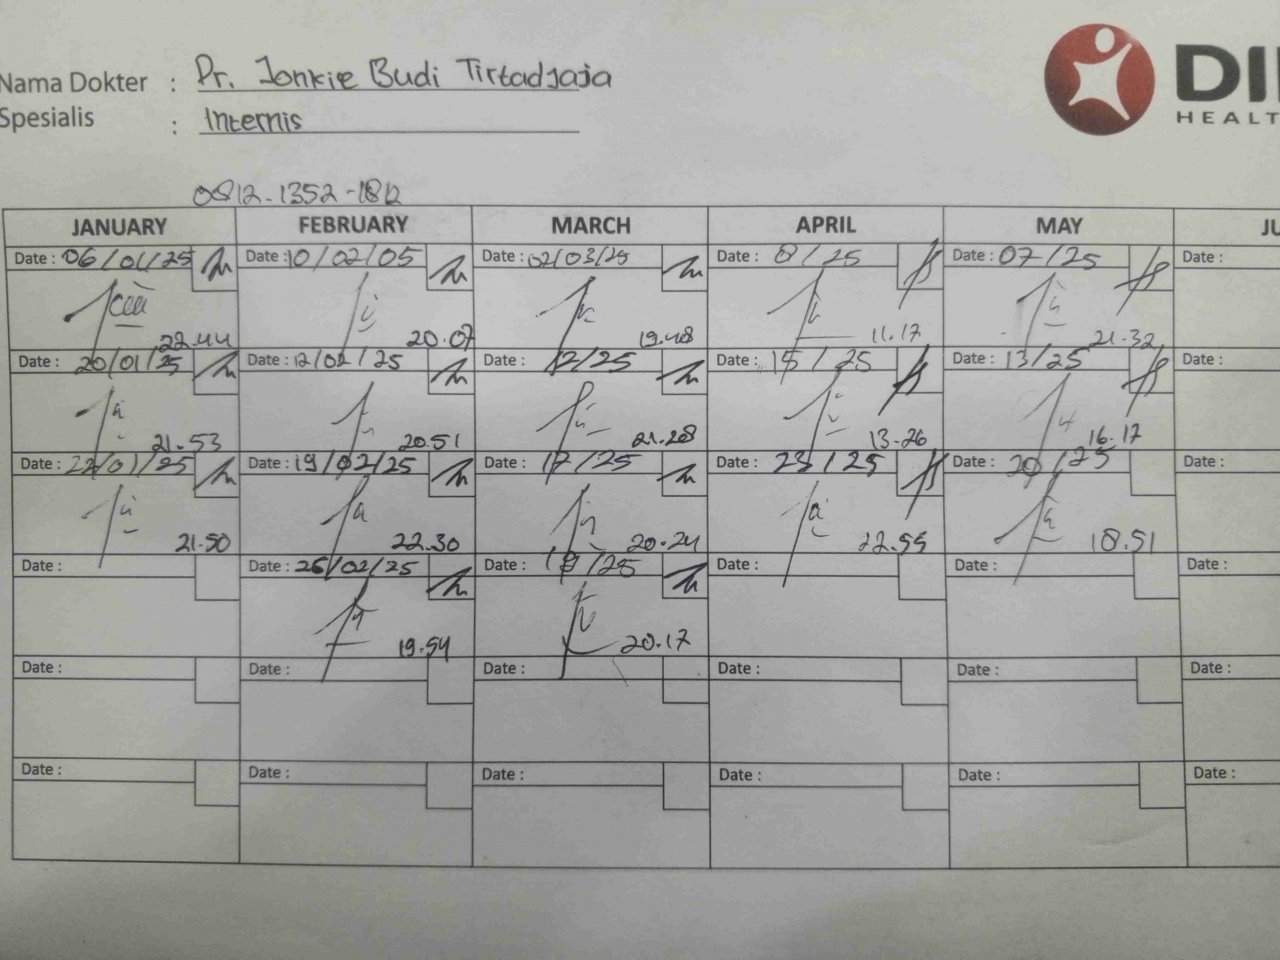 Nama Dokter : Dr. Jonkie Budi Tirtadjaja
DI
HEALT
Spesialis : Internis
0812-1352-1812
JANUARY FEBRUARY MARCH APRIL MAY JU
Date : 06/01/25 Date : 10/02/05 Date : 02/03/25 Date : 8/25 Date : 07/25 Date :
22.44 20.07 19.48 11.17 21.32
Date : 20/01/25 Date : 12/02/25 Date : 12/25 Date : 15/25 Date : 13/25 Date :
21.53 20.51 21.28 13-26 16.17
Date : 22/01/25 Date : 19/02/25 Date : 17/25 Date : 23/25 Date : 20/25 Date :
21.50 22.30 20.24 22.55 18.51
Date : Date : 26/02/25 Date : 19/25 Date : Date : Date :
19.54 20.17
Date : Date : Date : Date : Date : Date :
Date : Date : Date : Date : Date : Date :